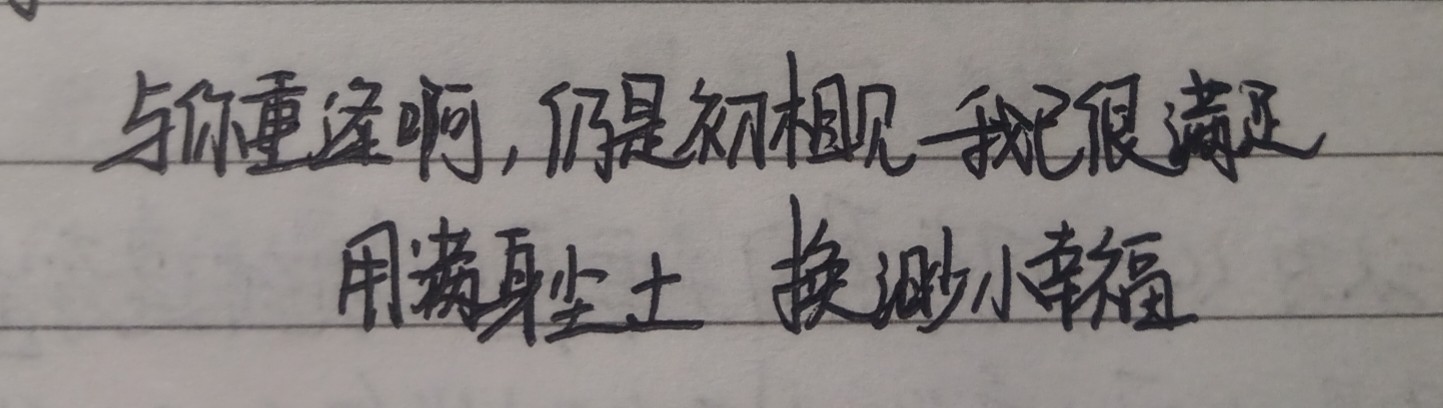 与你重逢啊,仍是初相见 我已很满足
用满身尘土 换渺小幸福